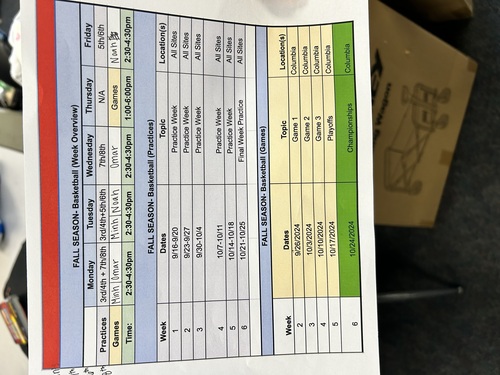 FALL SEASON- Basketball (Week Overview)
Monday Tuesday Wednesday Thursday Friday
Practices 3rd/4th + 7th/8th 3rd/4th+5th/6th 7th/8th N/A 5th/6th
Games Minh Omar Minh Noah Omar Games Noah
Time: 2:30-4:30pm 2:30-4:30pm 2:30-4:30pm 1:00-6:00pm 2:30-4:30pm
FALL SEASON- Basketball (Practices)
Week Dates Topic Location(s)
1 9/16-9/20 Practice Week All Sites
2 9/23-9/27 Practice Week All Sites
3 9/30-10/4 Practice Week All Sites
4 10/7-10/11 Practice Week All Sites
5 10/14-10/18 Practice Week All Sites
6 10/21-10/25 Final Week Practice All Sites
FALL SEASON- Basketball (Games)
Week Dates Topic Location(s)
2 9/26/2024 Game 1 Columbia
3 10/3/2024 Game 2 Columbia
4 10/10/2024 Game 3 Columbia
5 10/17/2024 Playoffs Columbia
6 10/24/2024 Championships Columbia
Wagon